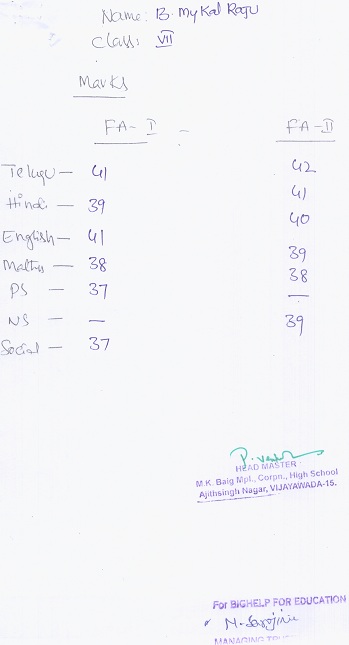 Name: B. Mykal Raju
Class: VII
Marks
FA-I - FA-II
Telugu — 41 42
Hindi — 39 41
English — 41 40
Maths — 38 39
PS — 37 38
NS — — —
Social — 37 39
HEAD MASTER
M.K. Baig Mpl., Corpn., High School
Ajithsingh Nagar, VIJAYAWADA-15.
For BIGHELP FOR EDUCATION
N. Sarojini
MANAGING